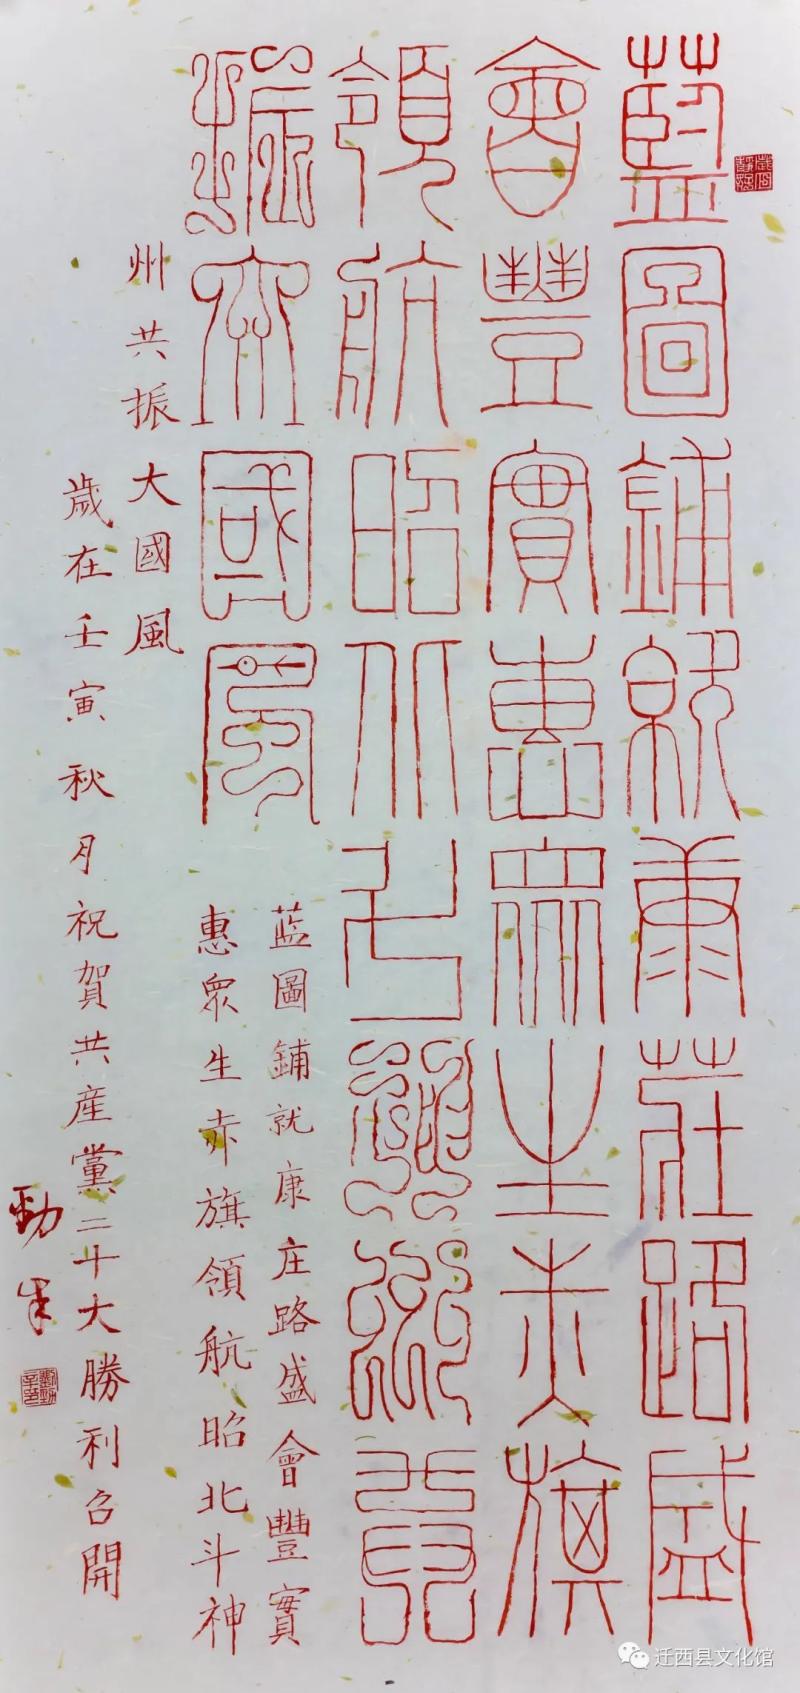 藍圖鋪就康莊路盛
會豐實惠眾生赤旗
領航昭北斗神州共
振大國風
蓝圖鋪就康庄路盛會豐實
惠眾生赤旗領航昭北斗神
州共振大國風
歲在壬寅秋月祝賀共産黨二十大勝利召開
勁
迁西县文化馆